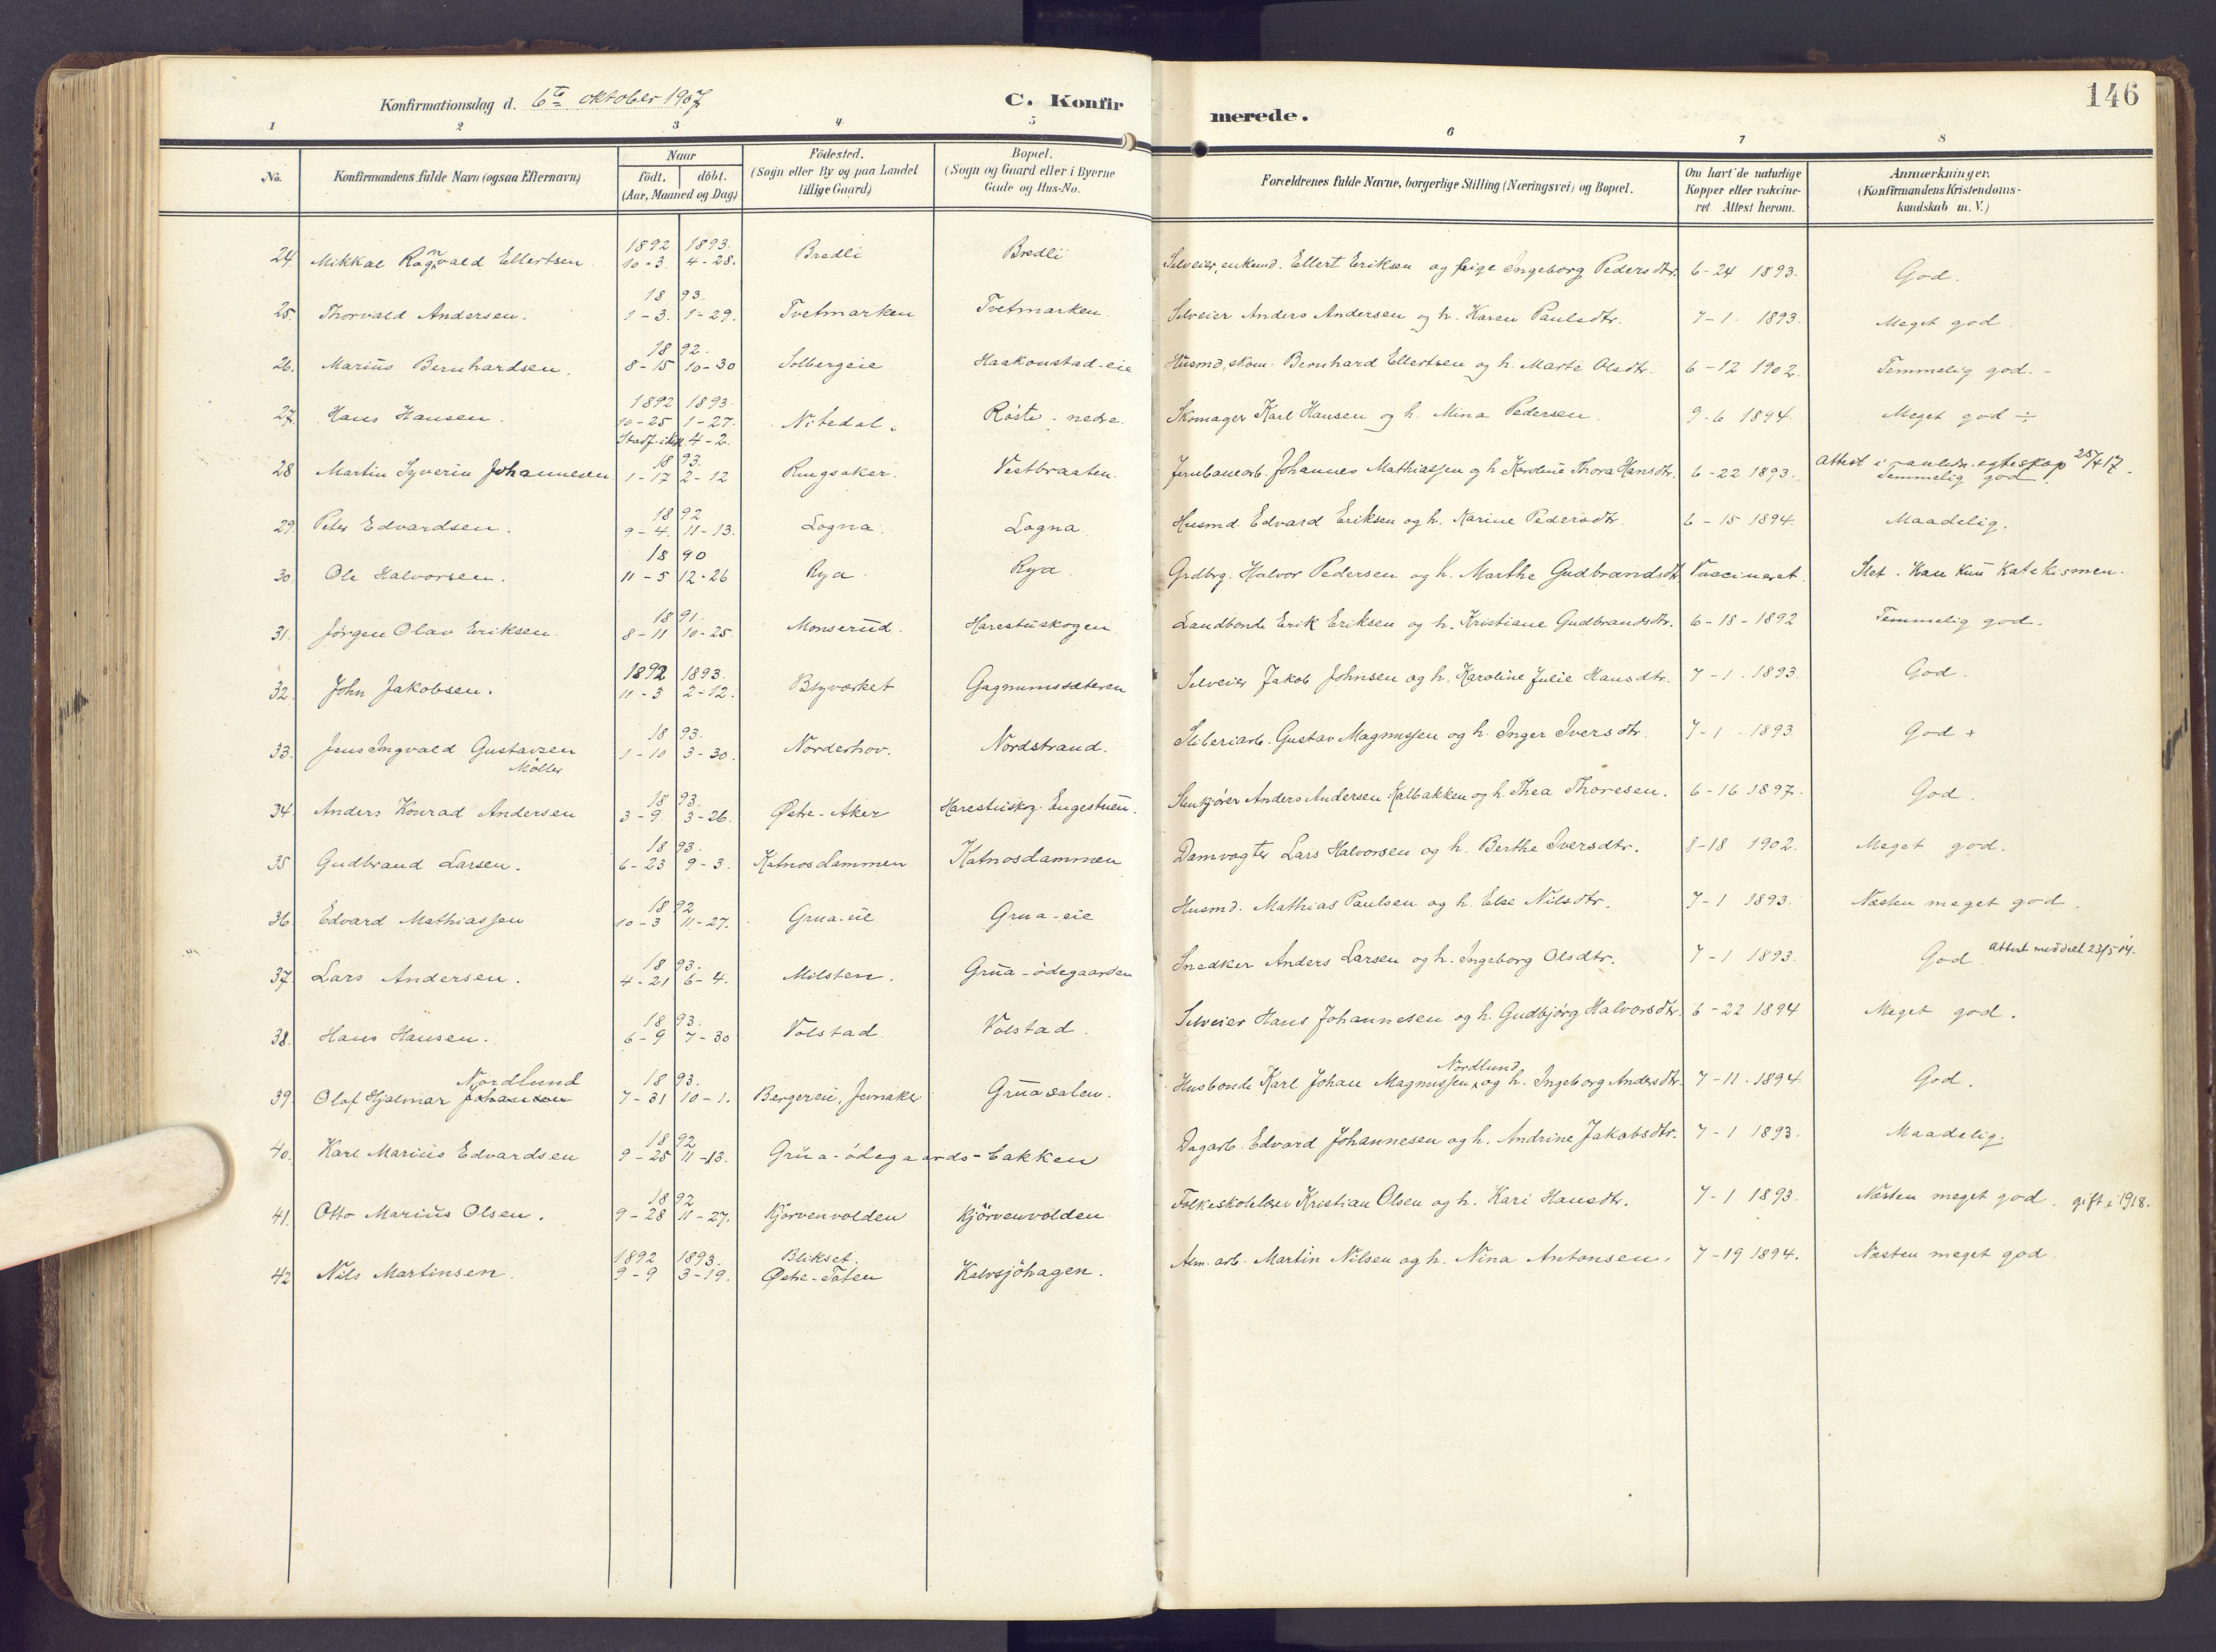 146
Konfirmationsdag d. 6te oktober 1907
C. Konfirmerede.
1 2 3 4 5 6 7 8
No. Konfirmandens fulde Navn (ogsaa Efternavn) Naar födt. döbt. (Aar, Maaned og Dag) Födested. (Sogn eller By og paa Landet tillige Gaard) Bopæl. (Sogn og Gaard eller i Byerne Gade og Hus-No. Forældrenes fulde Navne, borgerlige Stilling (Næringsvei) og Bopæl. Om havt de naturlige Kopper eller vakcineret Attest herom. Anmærkninger. (Konfirmandens Kristendomskundskab m. V.)
24. Mikkal Ragnvald Ellertsen 1892 10-3. 1893. 4-28. Bredli Bredli Selveier, enkemd. Ellert Eriksen og Ingeborg Pedersdtr. 6-24 1893. God.
25. Thorvald Andersen. 1893. 1-3. 1-29. Tvetmarken Tvetmarken. Selveier Anders Andersen og h. Karen Paulsdtr. 7-1. 1893. Meget god
26. Marius Bernhardsen. 1892. 8-15 10-30 Solbergeie Haakonstad-eie Husmd, skom. Bernhard Ellertsen og h. Marte Olsdtr. 6-12 1902. Temmelig god. -
27. Hans Hansen. 1892 10-25 1893. 1-27. Stadf. i 4-2. Nitedal. Röste-nedre. Skomager Karl Hansen og h. Mina Pedersen. 9-6 1894. Meget god ÷
28 Martin Syverin Johannesen 1893. 1-17 2-12 Ringsaker. Vestbraaten. Jernbanearb. Johannes Mathiassen og h. Karoline Thora Hansdtr. 6-22 1893. Attest i egteskap 25/4 17. Temmelig god.
29. Peter Edvardsen. 1892 9-4. 11-13. Logna. Logna. Husmd. Edvard Eriksen og h. Karine Pedersdtr. 6-15 1894. Maadelig.
30. Ole Halvorsen. 1890 11-5 12-26 Rya. Rya. Grdbrg. Halvor Pedersen og h. Marthe Gudbrandsdtr. Vaccineret. Slet. Kan kun Katekismen.
31. Jørgen Olav Eriksen. 1891. 8-11 10-25. Monserud. Harestuskogen Landbonde Erik Eriksen og h. Kristiane Gudbrandsdtr. 6-18-1892 Temmelig god.
32. John Jakobsen. 1892 11-3 1893. 2-12. Blyværket Gagnumssæteren Selveier Jakob Johnsen og h. Karoline Julie Hansdtr. 7-1. 1893 God.
33. Jens Ingvald Gustavsen Møller 1893. 1-10 3-30. Norderhov. Nordstrand. Sliberiarb. Gustav Magnussen og h. Inger Iversdtr. 7-1. 1893. God +
34. Anders Konrad Andersen 1893. 3-9 3-26. Østre-Aker Harestuskog. Engestuen. Anders Andersen Kalbakken og h. Thea Thoresen. 6-16 1897. God.
35 Gudbrand Larsen. 1893. 6-23 9-3. Katnosdammen Katnosdammen Damvogter Lars Halvorsen og h. Berthe Iversdtr. 8-18 1902. Meget god.
36. Edvard Mathiassen 1892 10-3 11-27. Grua-eie Grua-eie Husmd. Mathias Paulsen og h. Else Nilsdtr. 7-1 1893. Næsten meget god.
37. Lars Andersen. 1893. 4-21 6-4. Milsten. Grua-ödegaarden Snedker Anders Larsen og h. Ingeborg Olsdtr. 7-1 1893. God. Attest meddelt 23/5 14.
38. Hans Hansen. 1893. 6-9 7-30 Volstad. Volstad. Selveier Hans Johannesen og h. Gudbjørg Halvorsdtr. 6-22 1894 Meget god.
39. Olaf Hjalmar Johansen Nordlund 1893. 7-31 10-1. Bergereie, Jevnaker Gruasalen. Husbonde Karl Johan Magnussen Nordlund og h. Ingeborg Andersdtr. 7-11. 1894. God.
40. Karl Marius Edvardsen 1892 9-25 11-13. Grua-ödegaards-bakken Dagarb. Edvard Johannesen og h. Andrine Jakobsdtr. 7-1 1893. Maadelig.
41. Otto Marius Olsen. 1892 9-28 11-27. Kjörvenvolden Kjörvenvolden Folkeskolelærer Kristian Olsen og h. Kari Hansdtr. 7-1 1893. Næsten meget god. gift i 1918.
42 Nils Martinsen. 1892 9-9 1893. 3-19. Blikset. Østre-Toten Kalvsjöhagen. Alm. arb. Martin Nilsen og h. Nina Antonsen. 7-19 1894. Næsten meget god.